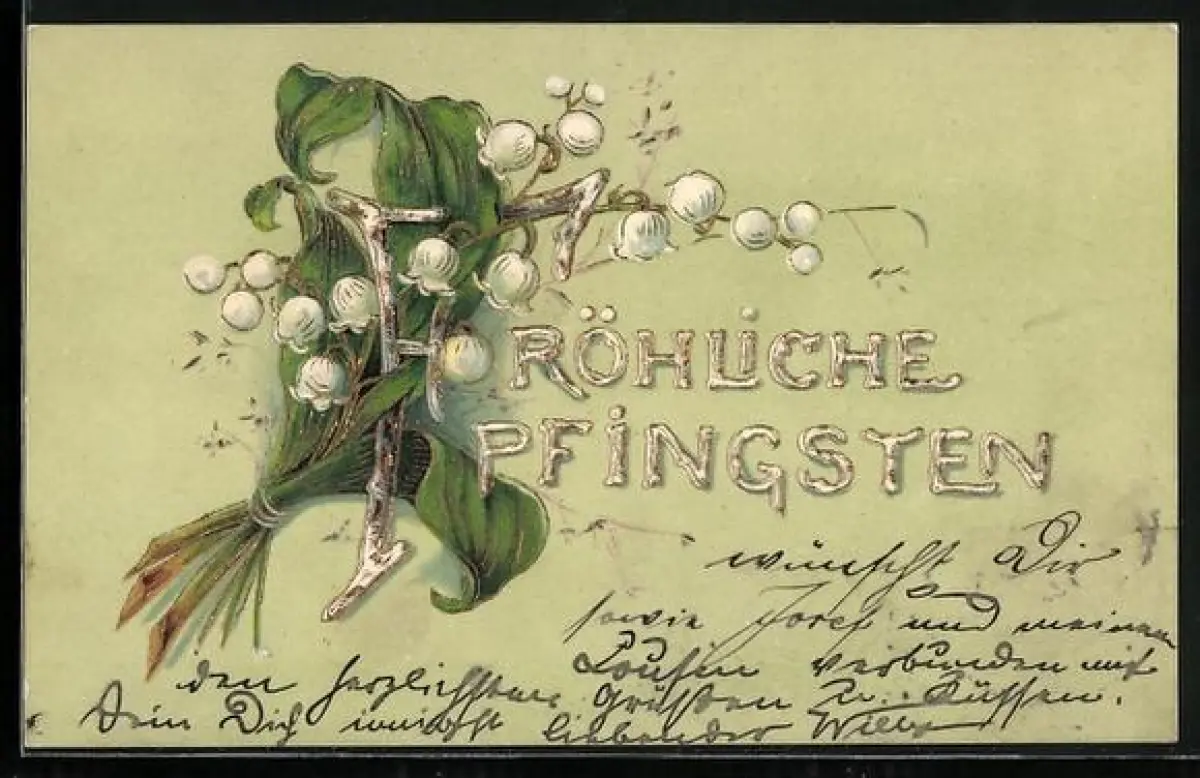 FRÖHLICHE
PFINGSTEN
wünscht Dir
sowie Josef und meinen
Cousin verbunden mit
den herzlichsten Grüßen u. Küssen.
Dein Dich innigst liebender Willy